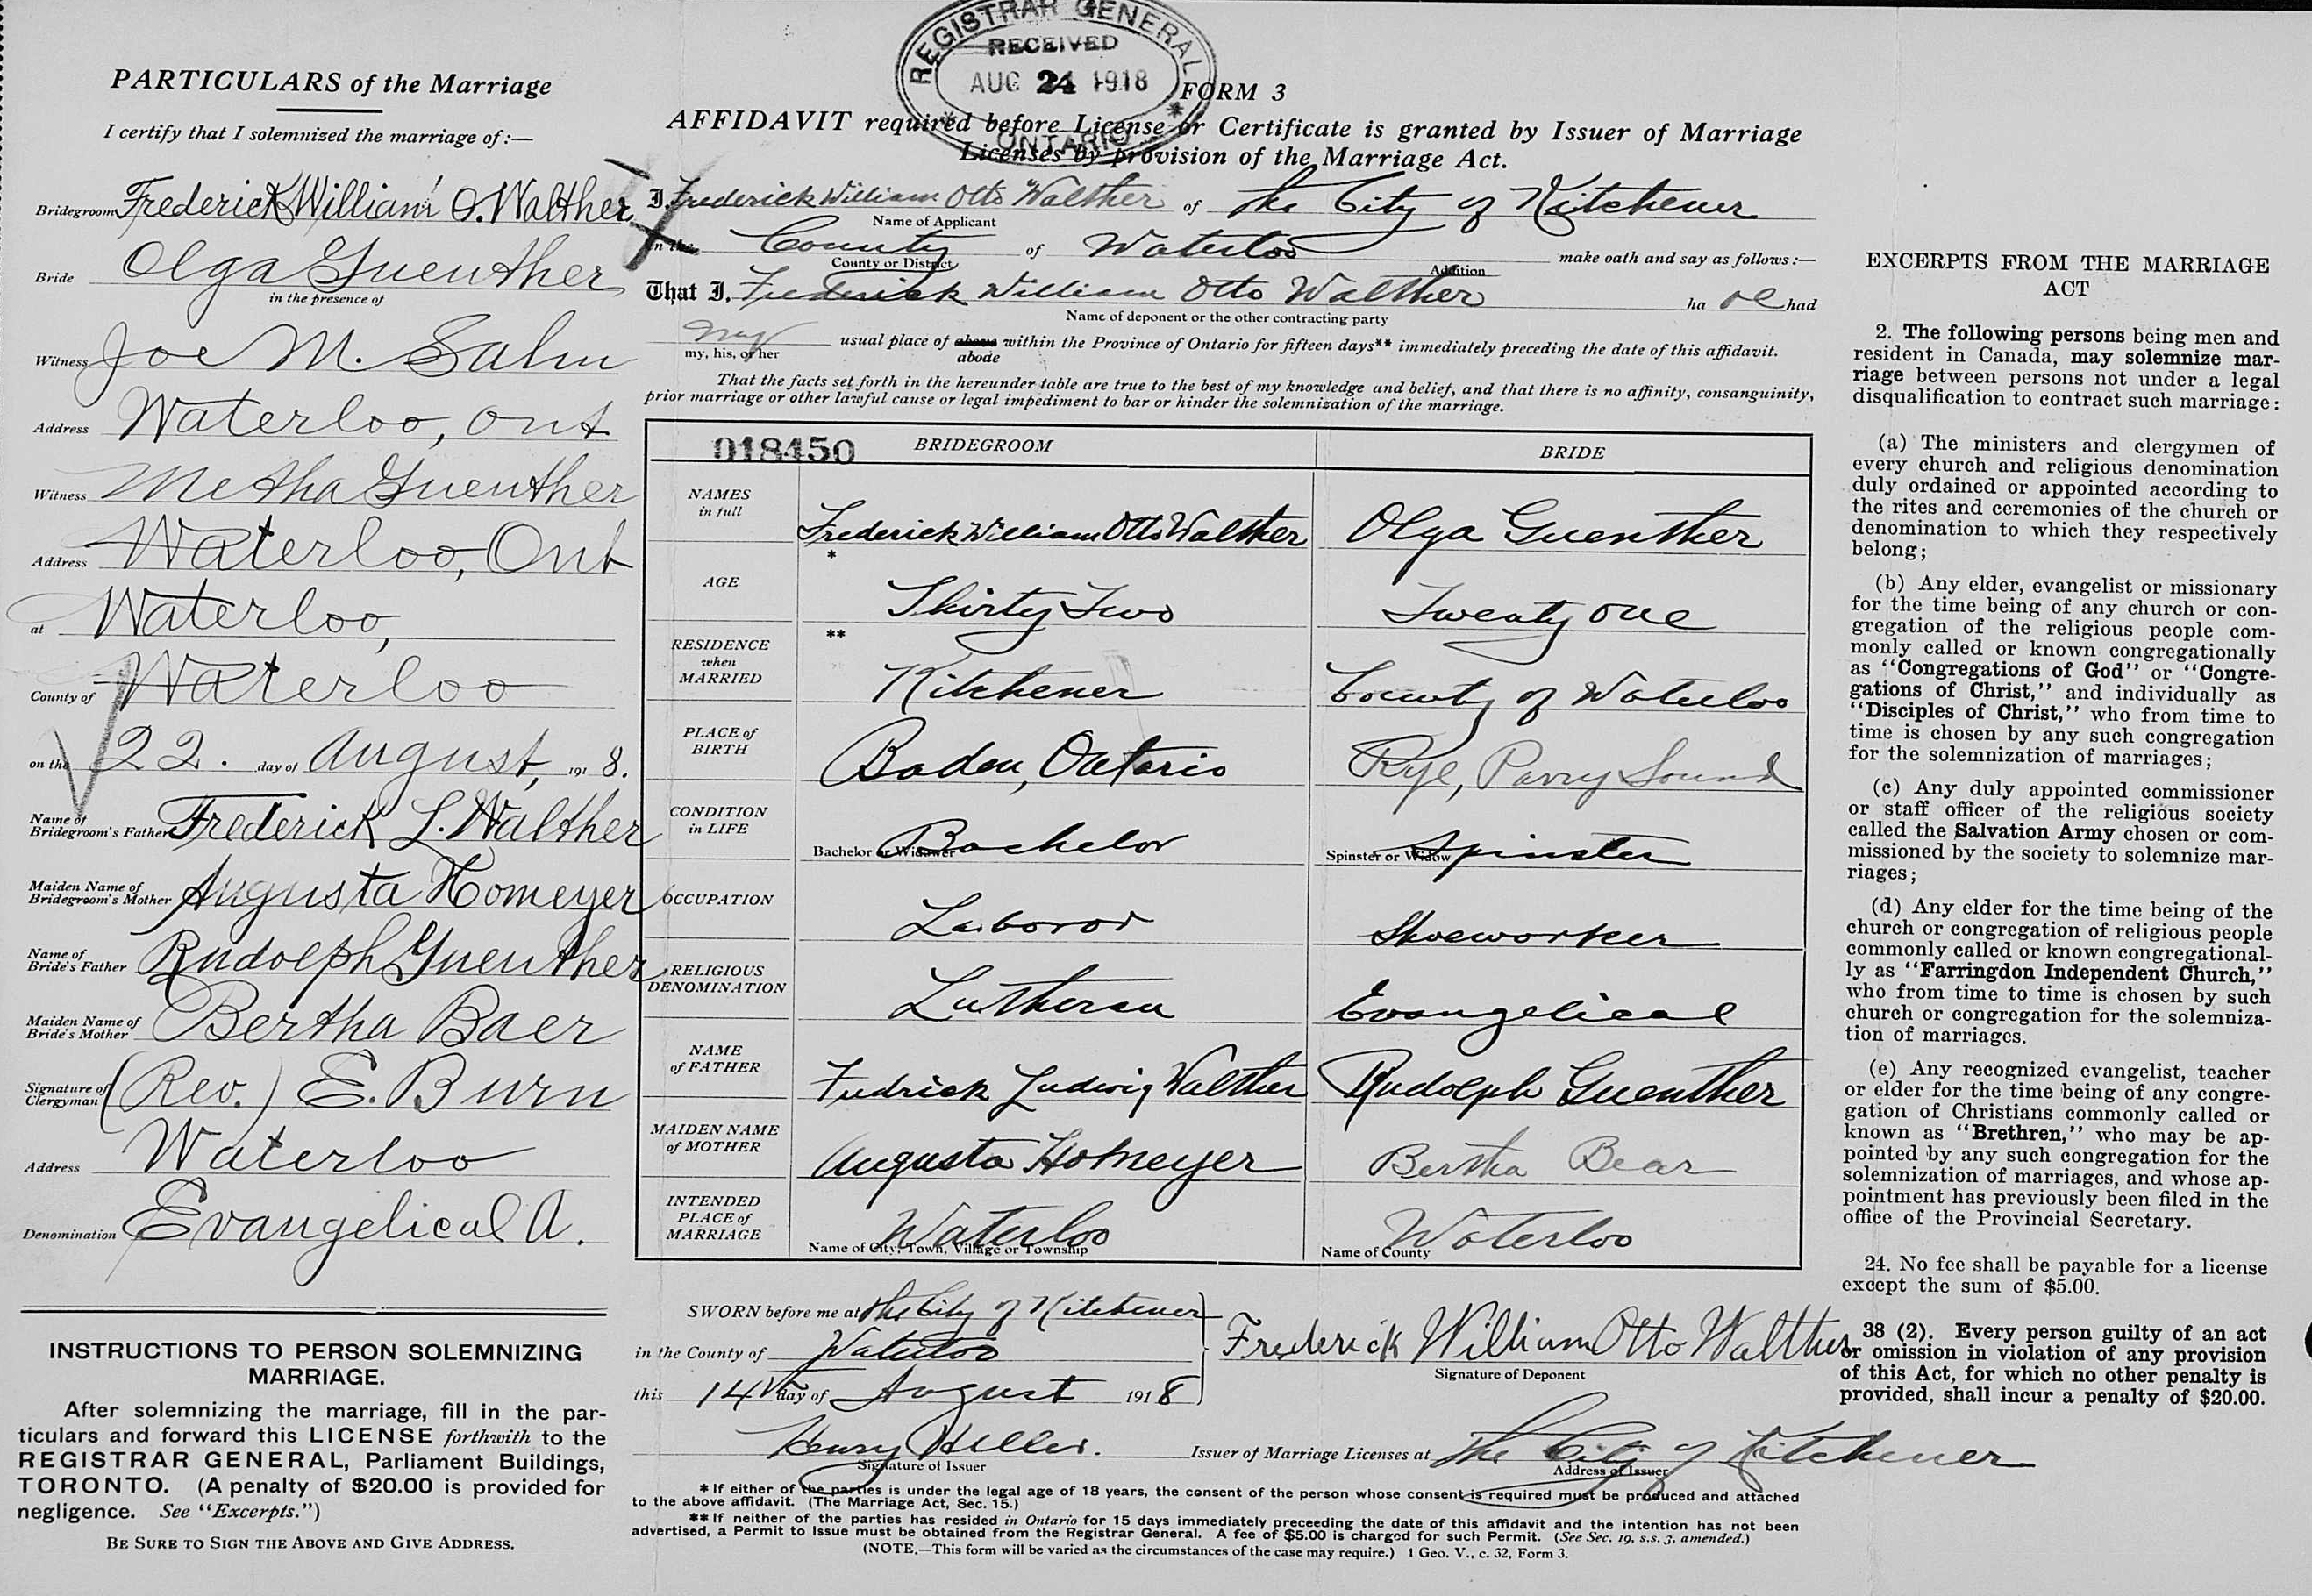 PARTICULARS of the Marriage
I certify that I solemnized the marriage of:—
Bridegroom Frederick William O. Walther
Bride Olga Guenther
in the presence of
Witness Joe M. Salm
Address Waterloo, Ont
Witness Metha Guenther
Address Waterloo, Ont
at Waterloo,
County of Waterloo
on the 22. day of August, 1918.
Name of Bridegroom's Father Frederick L. Walther
Maiden Name of Bridegroom's Mother Augusta Homeyer
Name of Bride's Father Rudolph Guenther
Maiden Name of Bride's Mother Bertha Baer
Signature of Clergyman (Rev.) E. Burn
Address Waterloo
Denomination Evangelical A.
INSTRUCTIONS TO PERSON SOLEMNIZING
MARRIAGE.
After solemnizing the marriage, fill in the par-
ticulars and forward this LICENSE forthwith to the
REGISTRAR GENERAL, Parliament Buildings,
TORONTO. (A penalty of $20.00 is provided for
negligence. See "Excerpts.")
BE SURE TO SIGN THE ABOVE AND GIVE ADDRESS.
REGISTRAR GENERAL
RECEIVED
AUG 24 1918
ONTARIO
FORM 3
AFFIDAVIT required before License or Certificate is granted by Issuer of Marriage
Licenses by provision of the Marriage Act.
I, Frederick William Otto Walther of The City of Kitchener
Name of Applicant
in the County of Waterloo make oath and say as follows:—
County or District Addition
That I, Frederick William Otto Walther ha ve had
Name of deponent or the other contracting party
my usual place of above within the Province of Ontario for fifteen days** immediately preceding the date of this affidavit.
my, his, or her abode
That the facts set forth in the hereunder table are true to the best of my knowledge and belief, and that there is no affinity, consanguinity,
prior marriage or other lawful cause or legal impediment to bar or hinder the solemnization of the marriage.
018450 BRIDEGROOM BRIDE
NAMES in full Frederick William Otto Walther Olga Guenther
* AGE Thirty Two Twenty one
** RESIDENCE when MARRIED Kitchener County of Waterloo
PLACE of BIRTH Baden, Ontario Rye, Parry Sound
CONDITION in LIFE Bachelor or Widower Bachelor Spinster or Widow Spinster
OCCUPATION Laboror Shoeworker
RELIGIOUS DENOMINATION Lutheran Evangelical
NAME of FATHER Fredrick Ludwig Walther Rudolph Guenther
MAIDEN NAME of MOTHER Augusta Homeyer Bertha Bear
INTENDED PLACE of MARRIAGE Waterloo Waterloo
Name of City, Town, Village or Township Name of County
SWORN before me at the City of Kitchener
in the County of Waterloo
this 14th day of August 1918
Frederick William Otto Walther
Signature of Deponent
Henry Hiller. Issuer of Marriage Licenses at The City of Kitchener
Signature of Issuer Address of Issuer
* If either of the parties is under the legal age of 18 years, the consent of the person whose consent is required must be produced and attached
to the above affidavit. (The Marriage Act, Sec. 15.)
** If neither of the parties has resided in Ontario for 15 days immediately preceeding the date of this affidavit and the intention has not been
advertised, a Permit to Issue must be obtained from the Registrar General. A fee of $5.00 is charged for such Permit. (See Sec. 19, s.s. 3, amended.)
(NOTE.—This form will be varied as the circumstances of the case may require.) 1 Geo. V., c. 32, Form 3.
EXCERPTS FROM THE MARRIAGE
ACT
2. The following persons being men and
resident in Canada, may solemnize mar-
riage between persons not under a legal
disqualification to contract such marriage:
(a) The ministers and clergymen of
every church and religious denomination
duly ordained or appointed according to
the rites and ceremonies of the church or
denomination to which they respectively
belong;
(b) Any elder, evangelist or missionary
for the time being of any church or con-
gregation of the religious people com-
monly called or known congregationally
as "Congregations of God" or "Congre-
gations of Christ," and individually as
"Disciples of Christ," who from time to
time is chosen by any such congregation
for the solemnization of marriages;
(c) Any duly appointed commissioner
or staff officer of the religious society
called the Salvation Army chosen or com-
missioned by the society to solemnize mar-
riages;
(d) Any elder for the time being of the
church or congregation of religious people
commonly called or known congregational-
ly as "Farringdon Independent Church,"
who from time to time is chosen by such
church or congregation for the solemniza-
tion of marriages.
(e) Any recognized evangelist, teacher
or elder for the time being of any congre-
gation of Christians commonly called or
known as "Brethren," who may be ap-
pointed by any such congregation for the
solemnization of marriages, and whose ap-
pointment has previously been filed in the
office of the Provincial Secretary.
24. No fee shall be payable for a license
except the sum of $5.00.
38 (2). Every person guilty of an act
or omission in violation of any provision
of this Act, for which no other penalty is
provided, shall incur a penalty of $20.00.